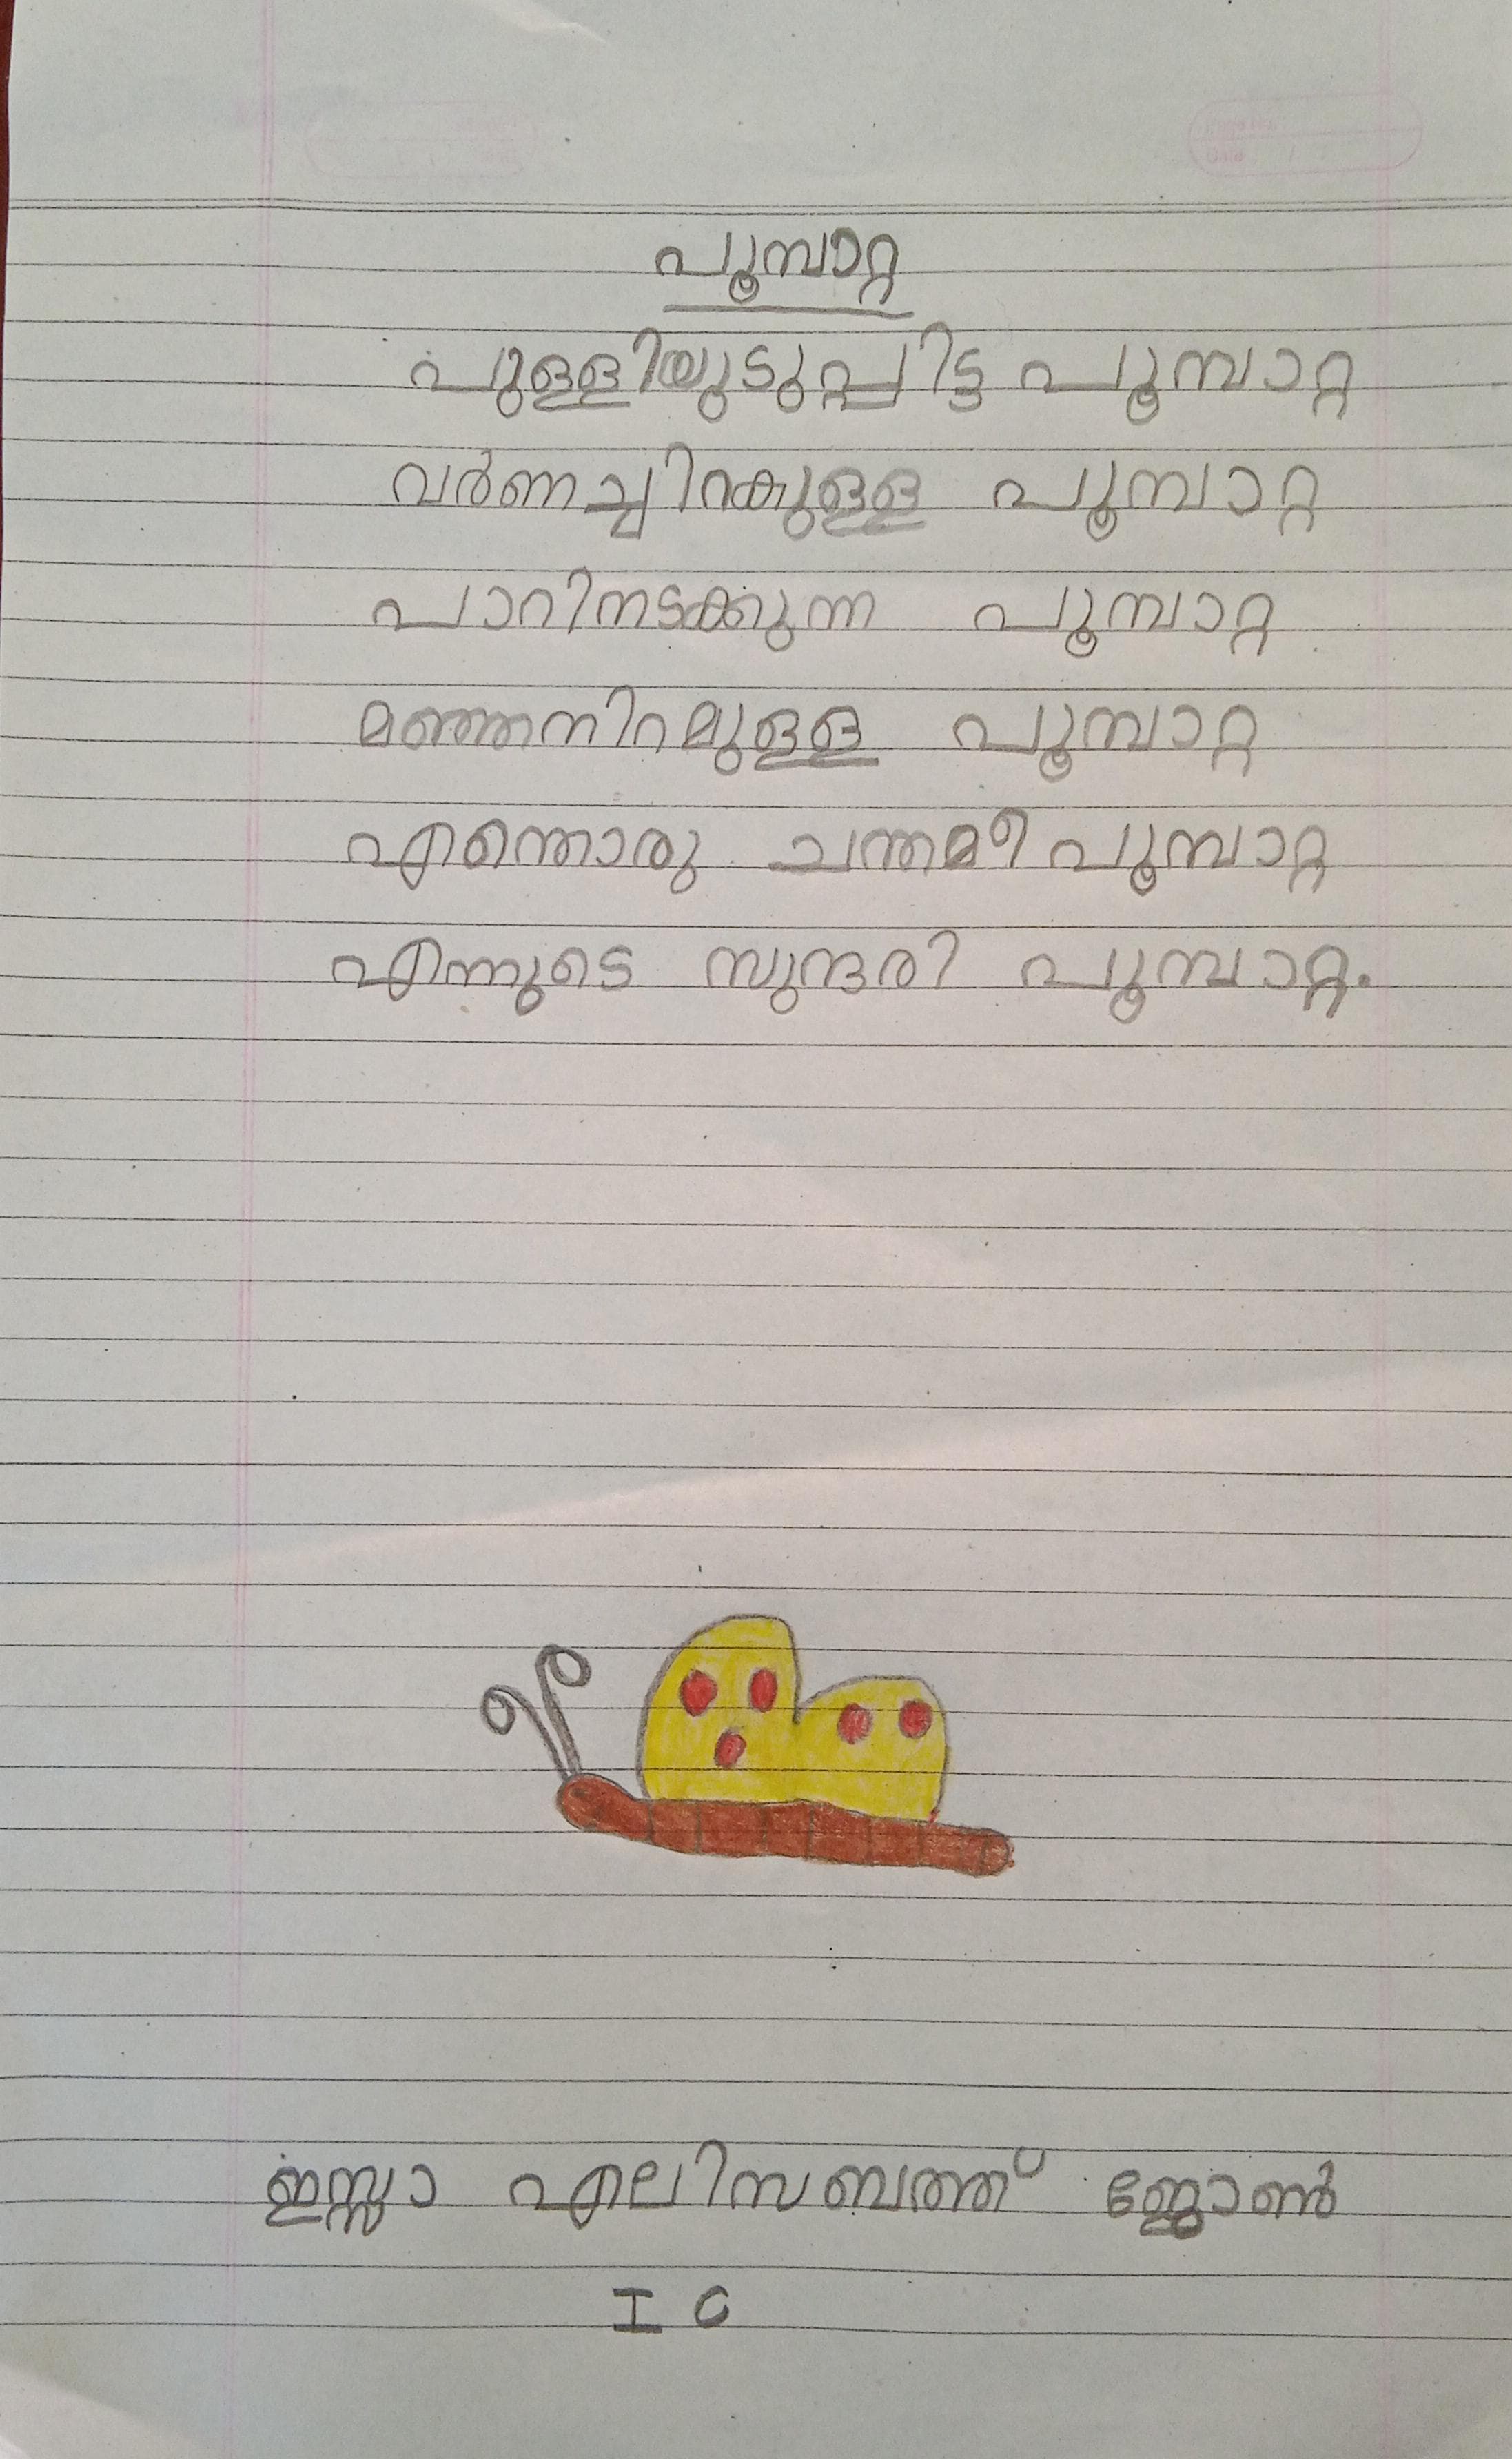 പൂമ്പാറ്റ
പുള്ളിയുടുപ്പിട്ട പൂമ്പാറ്റ
വർണച്ചിറകുള്ള പൂമ്പാറ്റ
പാറിനടക്കുന്ന പൂമ്പാറ്റ
മഞ്ഞനിറമുള്ള പൂമ്പാറ്റ
എന്തൊരു ചന്തമീ പൂമ്പാറ്റ
എന്നുടെ സുന്ദരി പൂമ്പാറ്റ.
ഇസ്സാ എലിസബത്ത് ജോൺ
I C